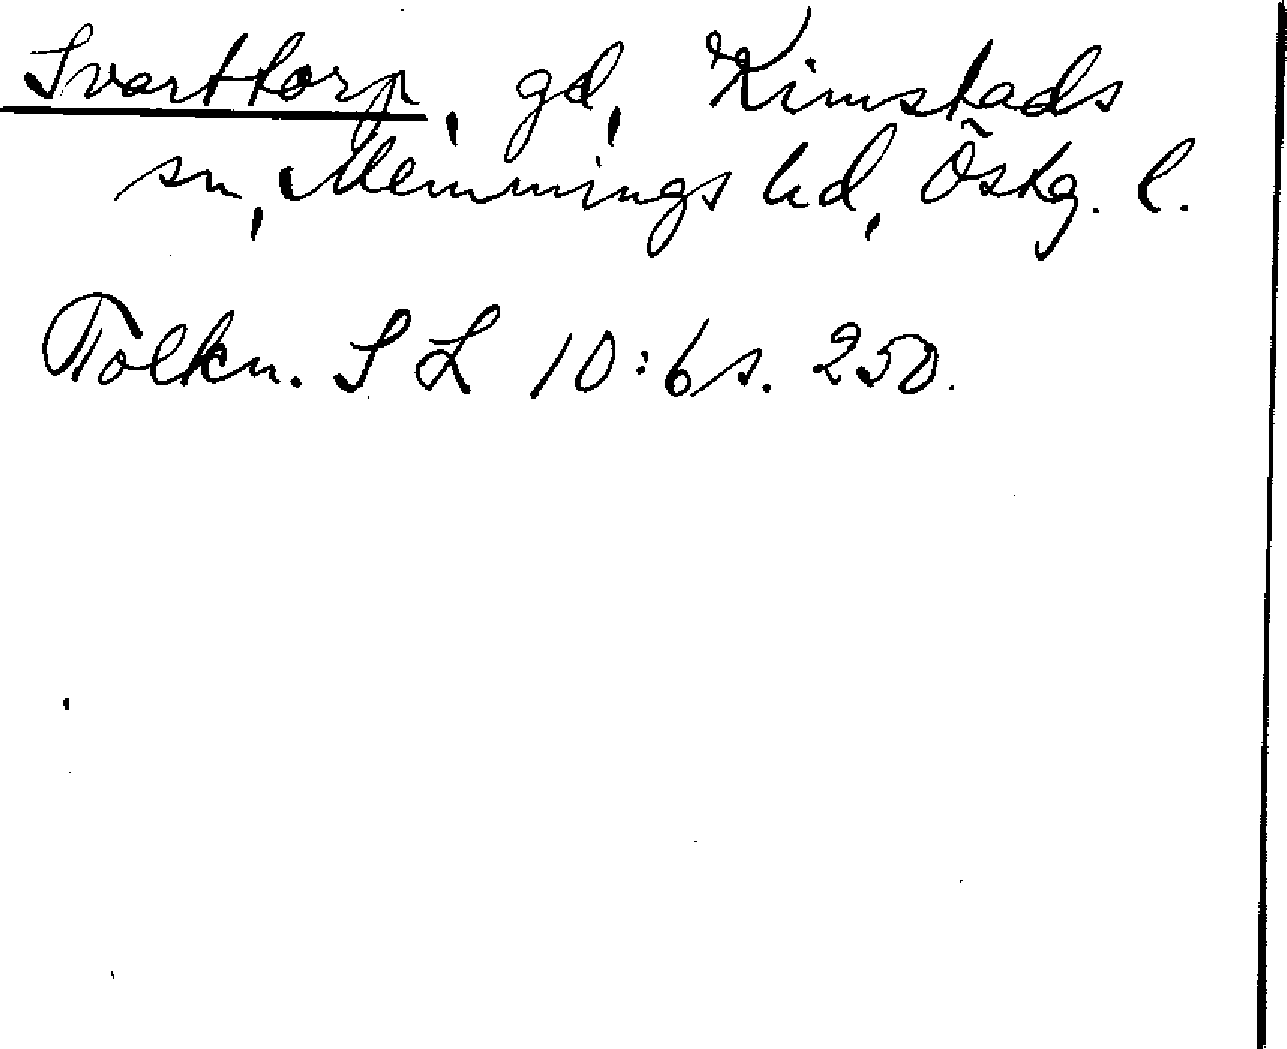 Svarttorp, gd, Kimstads
sn, Memmings hd, Östg. l.
Tolkn. S L 10:6 s. 250.